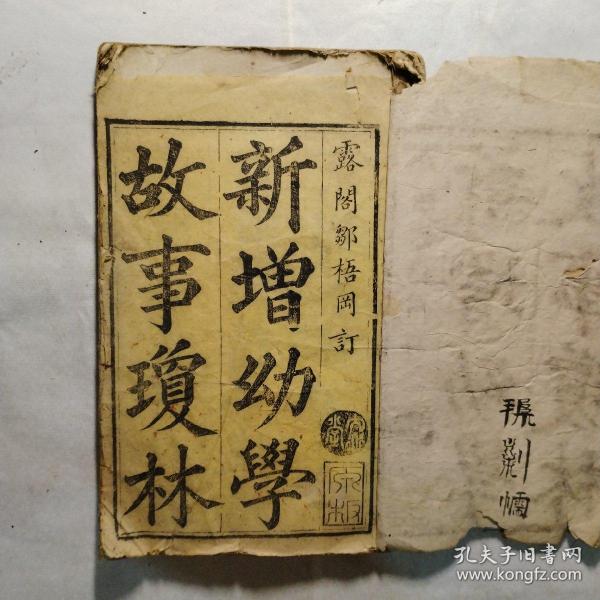 露閣鄒梧岡訂
新增幼學
故事瓊林
孔夫子旧书网
www.kongfz.com